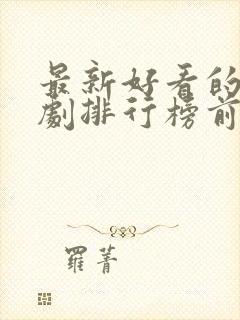 最新好看的
劇排行榜前
羅菁